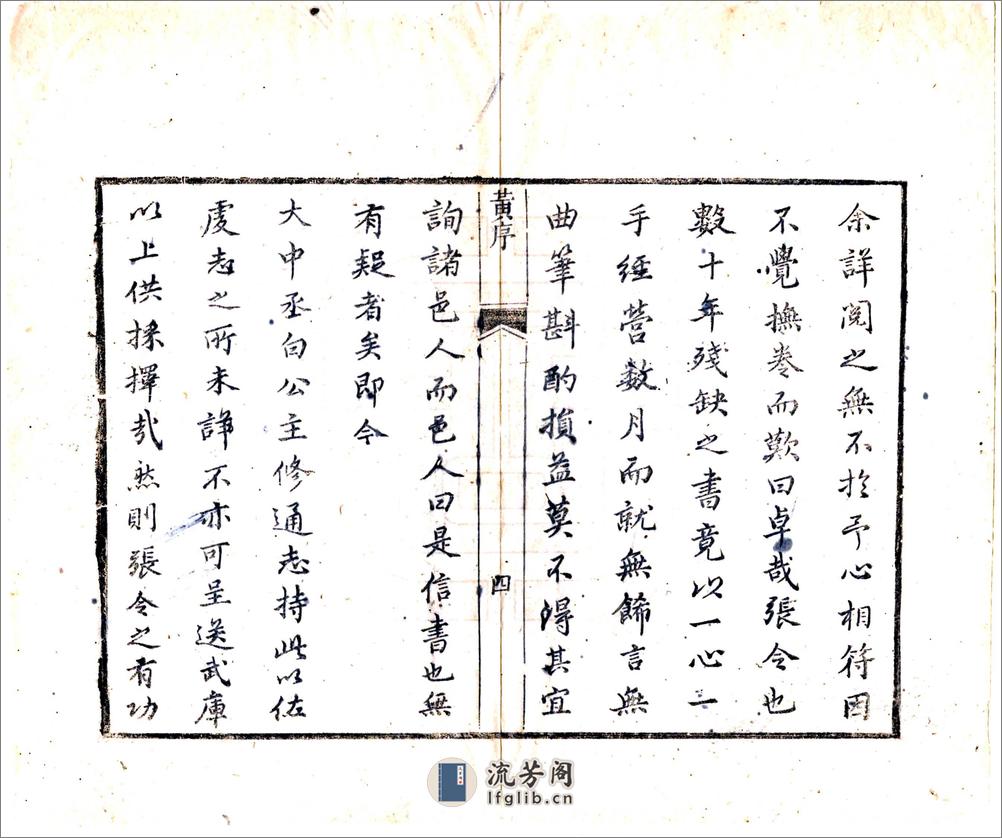 余詳閱之無不於予心相符因
不覺撫卷而歎曰卓哉張令也
數十年殘缺之書竟以一心一
手經營数月而就無餙言無
曲筆斟酌損益莫不得其宜
黃序
四
詢諸邑人而邑人曰是信書也無
有疑者矣即今
大中丞白公主修通志持此以佐
虔志之所未詳不亦可呈送武庫
以上供採擇哉然則張令之有功
流芳阁
lfglib.cn